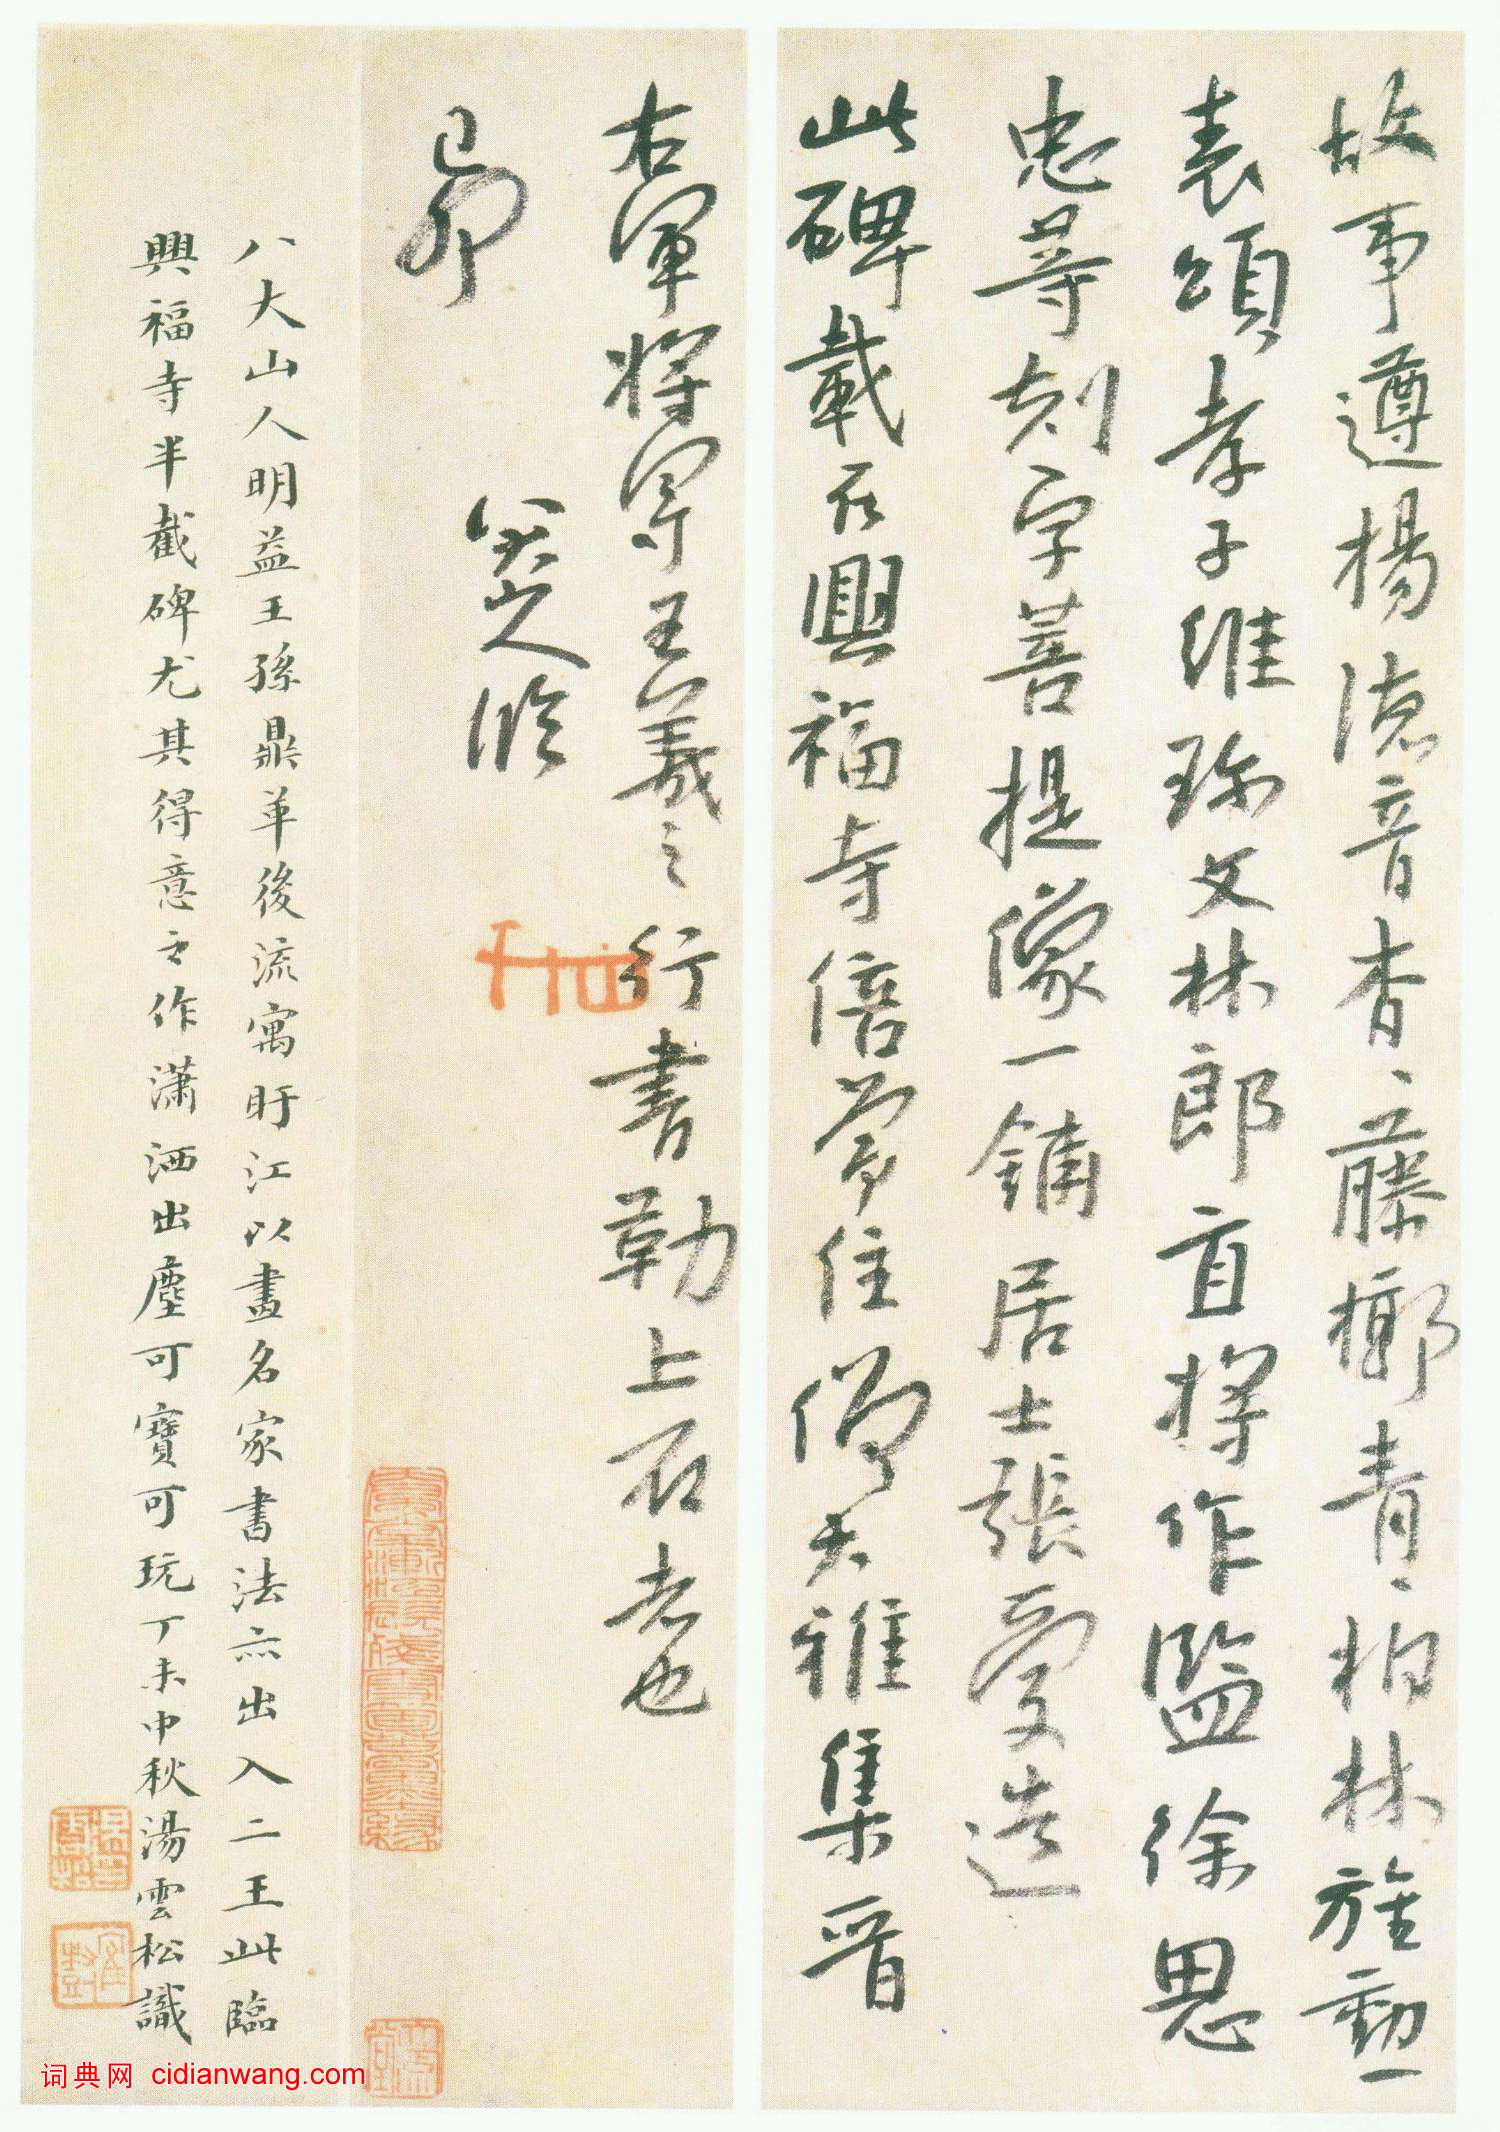 故事遵楊德音杳、藤擲青、柏林旌勳一
表頌孝子維珎文林郎直將作監徐思
忠等刻字善提像一鋪居士張受造
此碑載在興福寺倍常住僧大雅集晉
右軍將軍王羲之行書勒上石者也
已卯
八大山人臨
八大山人明益王孫鼎革後流寓盱江以畫名家書法亦出入二王此臨
興福寺半截碑尤其得意之作瀟洒出塵可寶可玩丁未中秋湯雲松識
词典网 cidianwang.com